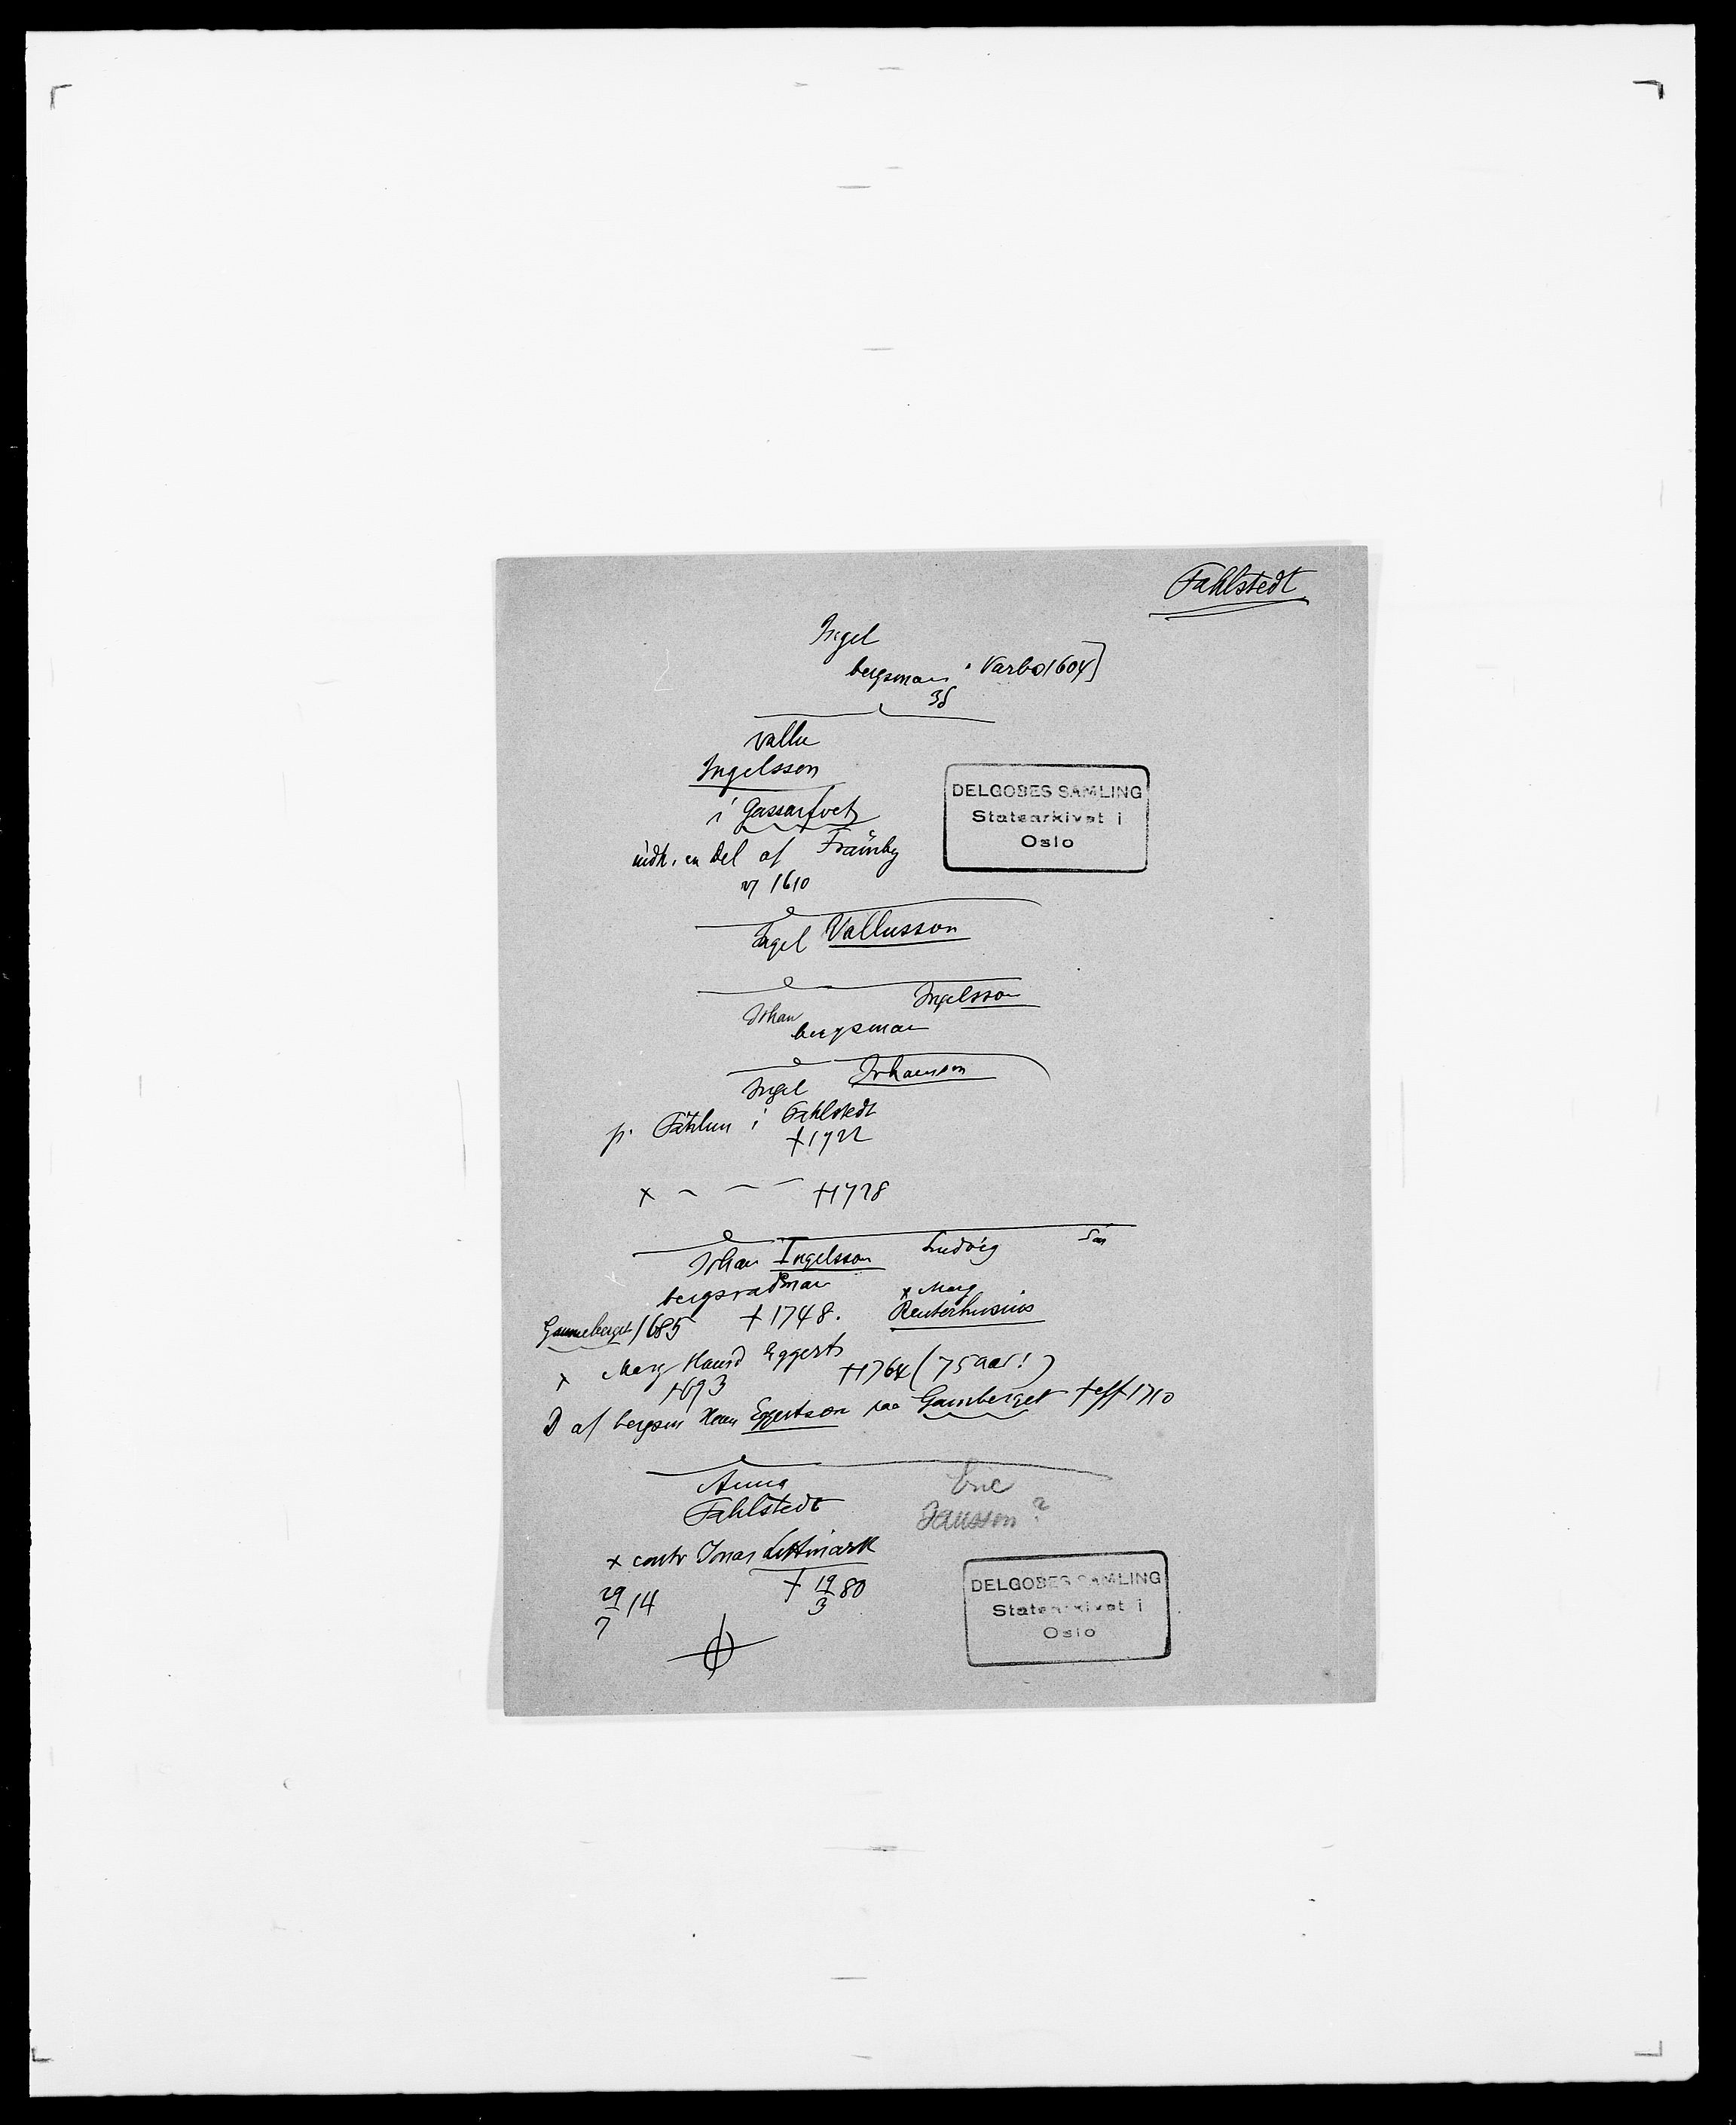 Fahlstedt
Ingel
bergsman i Varbo 1604]
Vallu
Ingelsson
i Gassarfvet
indh. en Del af Främby
1610
Ingel Vallusson
Johan Ingelsson
bergsman
Ingel Johansson
p. Fahlun i Fahlstedt
†1722
x — — — †1728
Johan Ingelsson Ludvig
bergsradman x Marg
Gamneberget 1685 †1748. Reuterhusius
x Marg Hansd Eggerts †1764 (75 aar!)
1693
D af bergsm Hans Eggertson paa Gamberget † eff 1710
Anna Eric
Fahlstedt Jansson?
x contr Jonas Littmarck
29/7 14 † 19/3 80
DELGOBES SAMLING
Statsarkivet i
Oslo
DELGOBES SAMLING
Statsarkivet i
Oslo